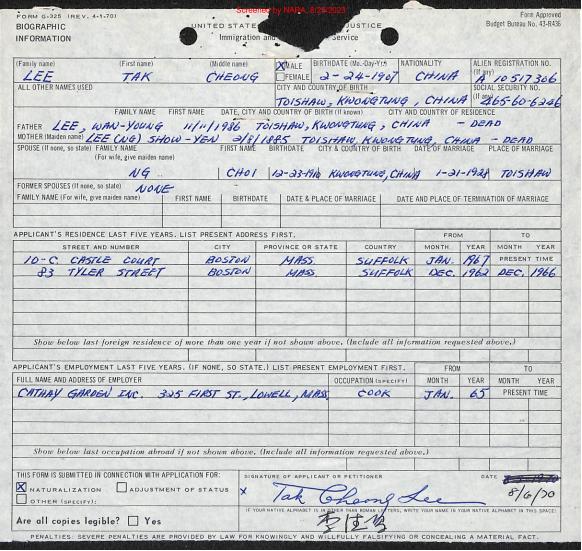 Screened by NARA, 8/25/2023
FORM G-325 (REV. 4-1-70)
BIOGRAPHIC INFORMATION
UNITED STATES JUSTICE
Immigration and Service
Form Approved
Budget Bureau No. 43-R436
(Family name) (First name) (Middle name) X MALE FEMALE BIRTHDATE (Mo.-Day-Yr.) NATIONALITY ALIEN REGISTRATION NO. (If any)
LEE TAK CHEONG 2-24-1907 CHINA A 10 517 306
ALL OTHER NAMES USED CITY AND COUNTRY OF BIRTH SOCIAL SECURITY NO. (If any)
TOISHAW, KWONGTUNG, CHINA 465-60-6246
FAMILY NAME FIRST NAME DATE, CITY AND COUNTRY OF BIRTH (If known) CITY AND COUNTRY OF RESIDENCE
FATHER LEE, WAN-YOUNG 11/11/1886 TOISHAW, KWONGTUNG, CHINA - DEAD
MOTHER (Maiden name) LEE (NG) SHOW-YEN 2/8/1885 TOISHAW, KWONGTUNG, CHINA - DEAD
SPOUSE (If none, so state) FAMILY NAME (For wife, give maiden name) FIRST NAME BIRTHDATE CITY & COUNTRY OF BIRTH DATE OF MARRIAGE PLACE OF MARRIAGE
NG CHOI 12-23-1910 KWONGTUNG, CHINA 1-21-1928 TOISHAW
FORMER SPOUSES (If none, so state) NONE
FAMILY NAME (For wife, give maiden name) FIRST NAME BIRTHDATE DATE & PLACE OF MARRIAGE DATE AND PLACE OF TERMINATION OF MARRIAGE
APPLICANT'S RESIDENCE LAST FIVE YEARS. LIST PRESENT ADDRESS FIRST. FROM TO
STREET AND NUMBER CITY PROVINCE OR STATE COUNTRY MONTH YEAR MONTH YEAR
10-C. CASTLE COURT BOSTON MASS. SUFFOLK JAN. 1967 PRESENT TIME
83 TYLER STREET BOSTON MASS. SUFFOLK DEC. 1962 DEC. 1966
Show below last foreign residence of more than one year if not shown above. (Include all information requested above.)
APPLICANT'S EMPLOYMENT LAST FIVE YEARS. (IF NONE, SO STATE.) LIST PRESENT EMPLOYMENT FIRST. FROM TO
FULL NAME AND ADDRESS OF EMPLOYER OCCUPATION (SPECIFY) MONTH YEAR MONTH YEAR
CATHAY GARDEN INC. 325 FIRST ST., LOWELL, MASS. COOK JAN. 65 PRESENT TIME
Show below last occupation abroad if not shown above. (Include all information requested above.)
THIS FORM IS SUBMITTED IN CONNECTION WITH APPLICATION FOR: SIGNATURE OF APPLICANT OR PETITIONER DATE
X NATURALIZATION ADJUSTMENT OF STATUS
OTHER (SPECIFY):
x Tak Cheong Lee 8/6/70
(IF YOUR NATIVE ALPHABET IS IN OTHER THAN ROMAN LETTERS, WRITE YOUR NAME IN YOUR NATIVE ALPHABET IN THIS SPACE)
Are all copies legible? Yes
PENALTIES: SEVERE PENALTIES ARE PROVIDED BY LAW FOR KNOWINGLY AND WILLFULLY FALSIFYING OR CONCEALING A MATERIAL FACT.